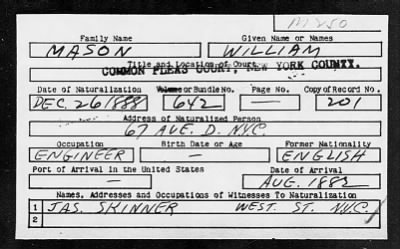 M250
Family Name Given Name or Names
MASON WILLIAM
Title and Location of Court
COMMON PLEAS COURT, NEW YORK COUNTY.
Date of Naturalization Volume or Bundle No. Page No. Copy of Record No.
DEC. 26 1888 642 — 201
Address of Naturalized Person
67 AVE. D. N.Y.C.
Occupation Birth Date or Age Former Nationality
ENGINEER — ENGLISH
Port of Arrival in the United States Date of Arrival
— AUG. 1882
Names, Addresses and Occupations of Witnesses To Naturalization
1 JAS. SKINNER WEST. ST. N.Y.C.
2